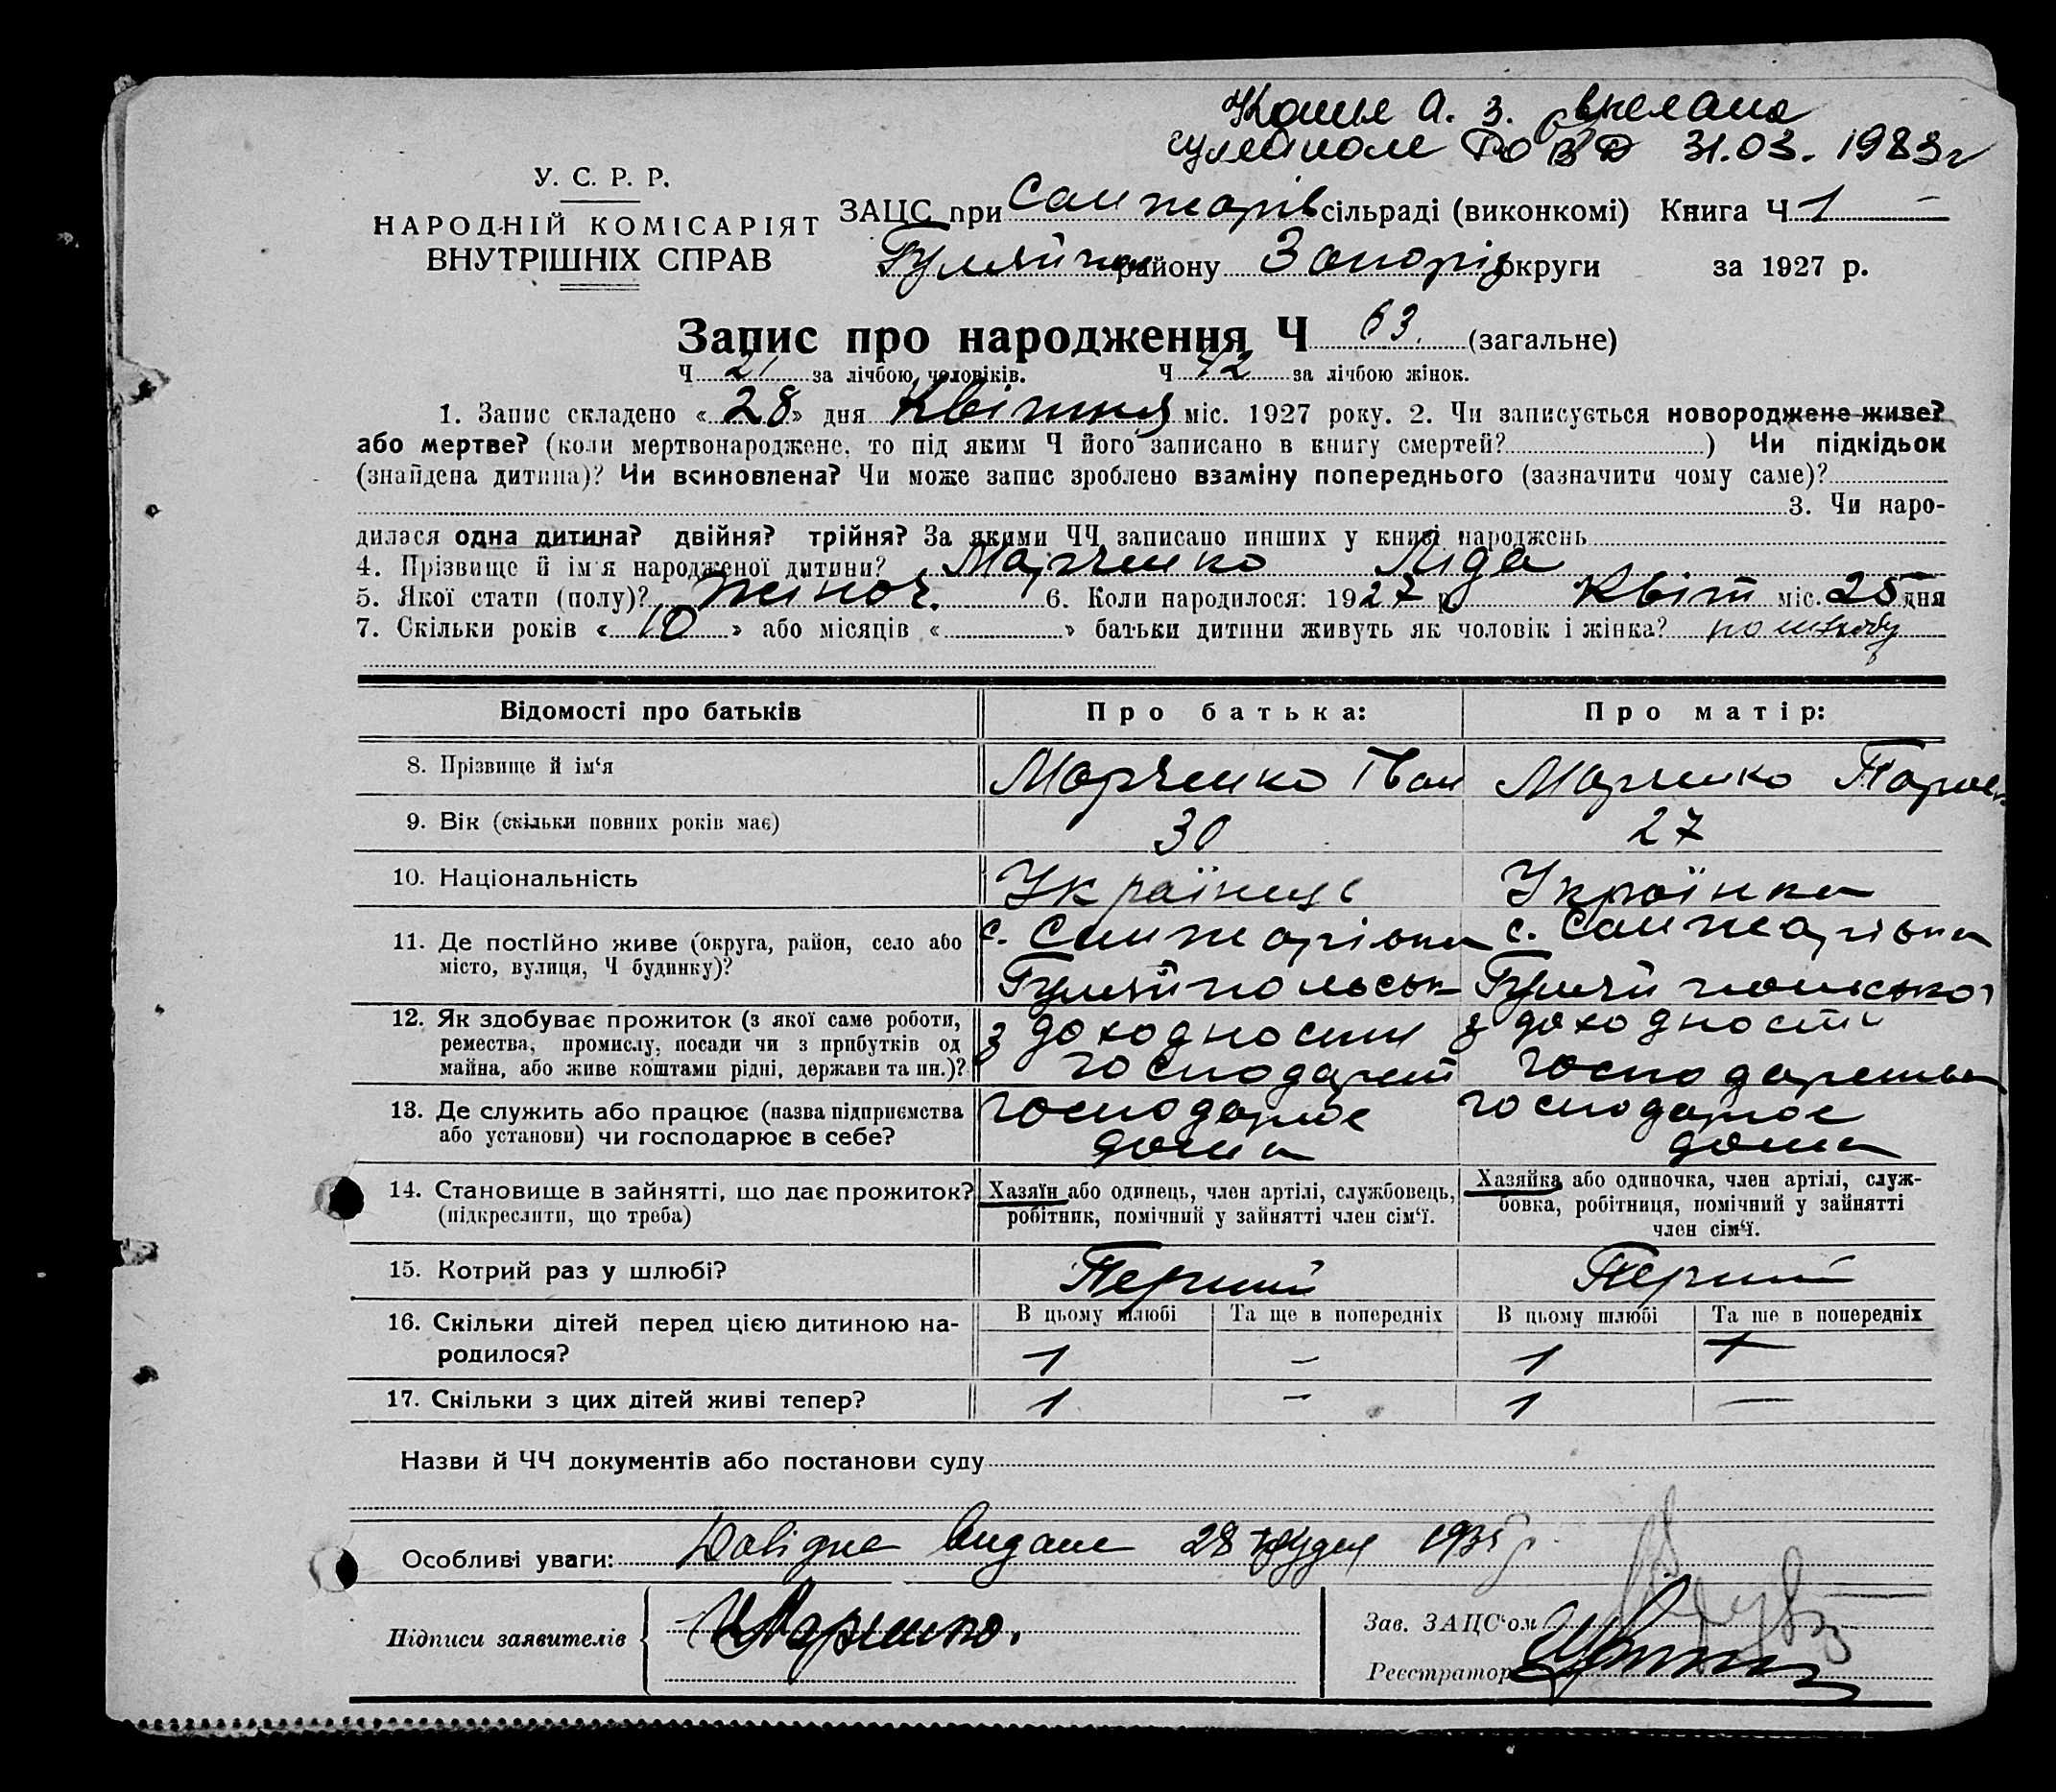 Копия а. з. выслана
гуляйполе РО ВД 31.03. 1983г
У. С. Р. Р.
НАРОДНІЙ КОМІСАРІЯТ
ВНУТРІШНІХ СПРАВ
ЗАЦС при Санжарів сільраді (виконкомі) Книга Ч 1
Гуляйпол району Запоріз округи за 1927 р.
Запис про народження Ч 63. (загальне)
Ч 21 за лічбою чоловіків. Ч 42 за лічбою жінок.
1. Запис складено « 28 » дня Квітня міс. 1927 року. 2. Чи записується новороджене живе?
або мертве? (коли мертвонароджене, то під яким Ч його записано в книгу смертей? ) Чи підкідьок
(знайдена дитина)? Чи всиновлена? Чи може запис зроблено взаміну попереднього (зазначити чому саме)?
3. Чи наро-
дилася одна дитина? двійня? трійня? За якими ЧЧ записано инших у книзі народжень
4. Прізвище й ім'я народженої дитини? Марченко Ліда
5. Якої стати (полу)? жіноч. 6. Коли народилося: 1927 р. Квіт міс. 25 дня
7. Скільки років « 10 » або місяців « » батьки дитини живуть як чоловік і жінка? по шлюбу
Відомості про батьків Про батька: Про матір:
8. Прізвище й ім'я Марченко Іван Марченко
9. Вік (скільки повних років має) 30 27
10. Національність Українець Українка
11. Де постійно живе (округа, район, село або с. Санжарівка с. Санжарівка
місто, вулиця, Ч будинку)? Гуляйпольськ Гуляйпольсько
12. Як здобуває прожиток (з якої саме роботи, з доходности з доходности
ремества, промислу, посади чи з прибутків од
майна, або живе коштами рідні, держави та ин.)? господарст господарства
13. Де служить або працює (назва підприємства господарює господарює
або установи) чи господарює в себе? дома дома
14. Становище в зайнятті, що дає прожиток? Хазяїн або одинець, член артілі, службовець, Хазяйка або одиночка, член артілі, служ-
(підкреслити, що треба) робітник, помічний у зайнятті член сім'ї. бовка, робітниця, помічний у зайнятті
член сім'ї.
15. Котрий раз у шлюбі? Перший Перший
16. Скільки дітей перед цією дитиною на- В цьому шлюбі Та ще в попередніх В цьому шлюбі Та ще в попередніх
родилося? 1 – 1
17. Скільки з цих дітей живі тепер? 1 – 1 –
Назви й ЧЧ документів або постанови суду
Особливі уваги: Довідка видана 28 грудня 1935 р.
Підписи заявителів Марченко. Зав. ЗАЦС'ом
Реєстратор